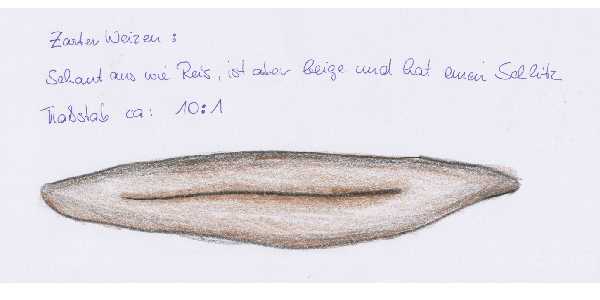 Zarter Weizen :
Schaut aus wie Reis, ist aber beige und hat einen Schlitz
Maßstab ca: 10:1